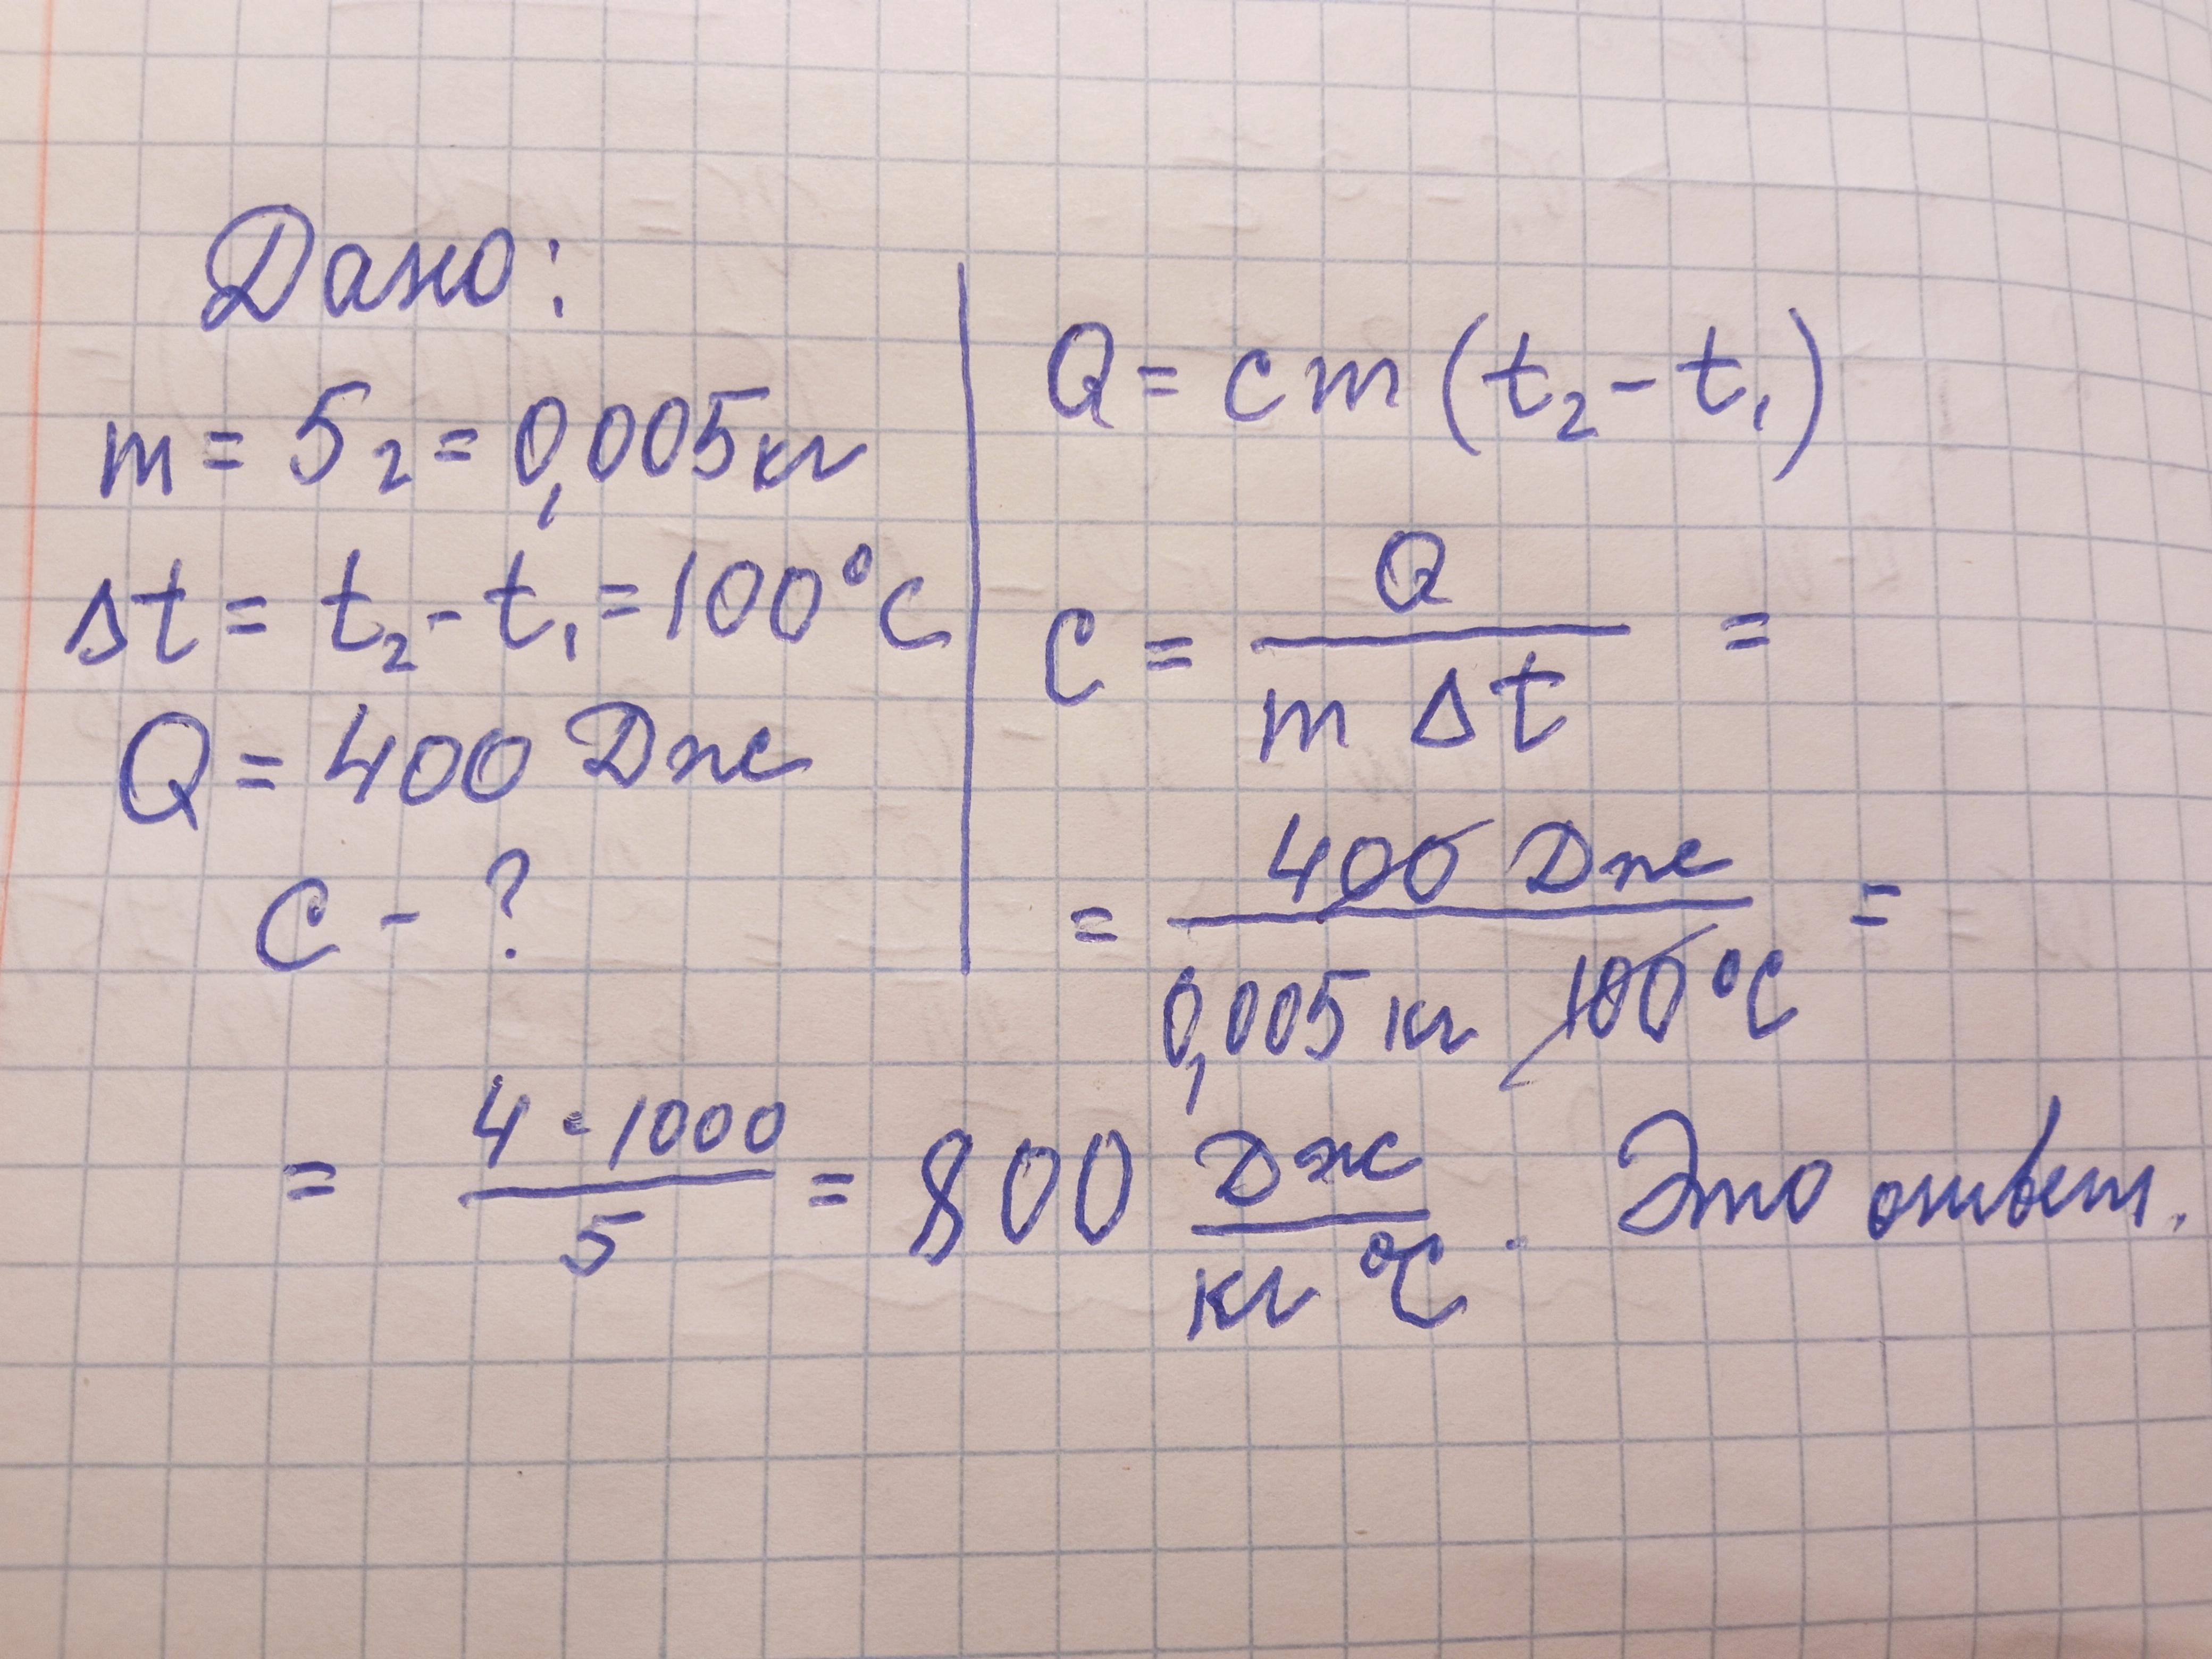 Дано:
m = 5 г = 0,005 кг
Δt = t₂ - t₁ = 100°C
Q = 400 Дж
C - ?
Q = cm (t₂ - t₁)
C = Q / (m Δt) =
= 400 Дж / (0,005 кг 100 °C) =
= (4 · 1000) / 5 = 800 Дж / (кг °C) . Это ответ.